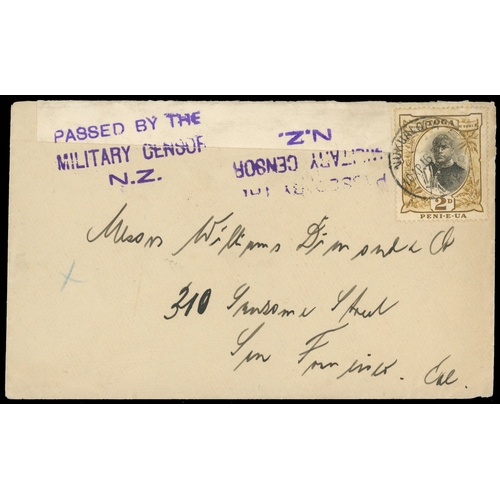 PASSED BY THE
MILITARY CENSOR
N.Z.
PASSED BY THE
MILITARY CENSOR
N.Z.
TOGA
2D
PENI·E·UA
Messrs Williams Dimond & Co
310 Sansome Street
San Francisco. Cal.